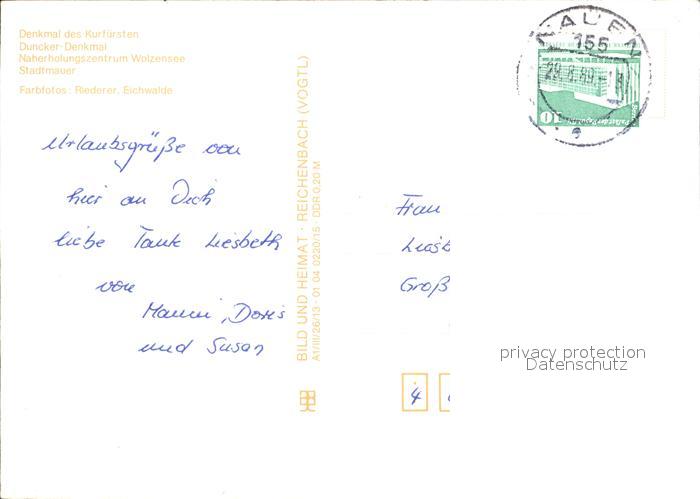 Denkmal des Kurfürsten
Duncker-Denkmal
Naherholungszentrum Wolzensee
Stadtmauer
Farbfotos: Riederer, Eichwalde
Urlaubsgrüße von
hier an Dich
liebe Tante Liesbeth
von
Manni, Doris
und Susan
BILD UND HEIMAT · REICHENBACH (VOGTL)
A1/III/26/13 · 01 04 0220/15 · DDR 0,20 M
NAUEN
155
29.8.89
10
Frau
Groß
4
privacy protection
Datenschutz